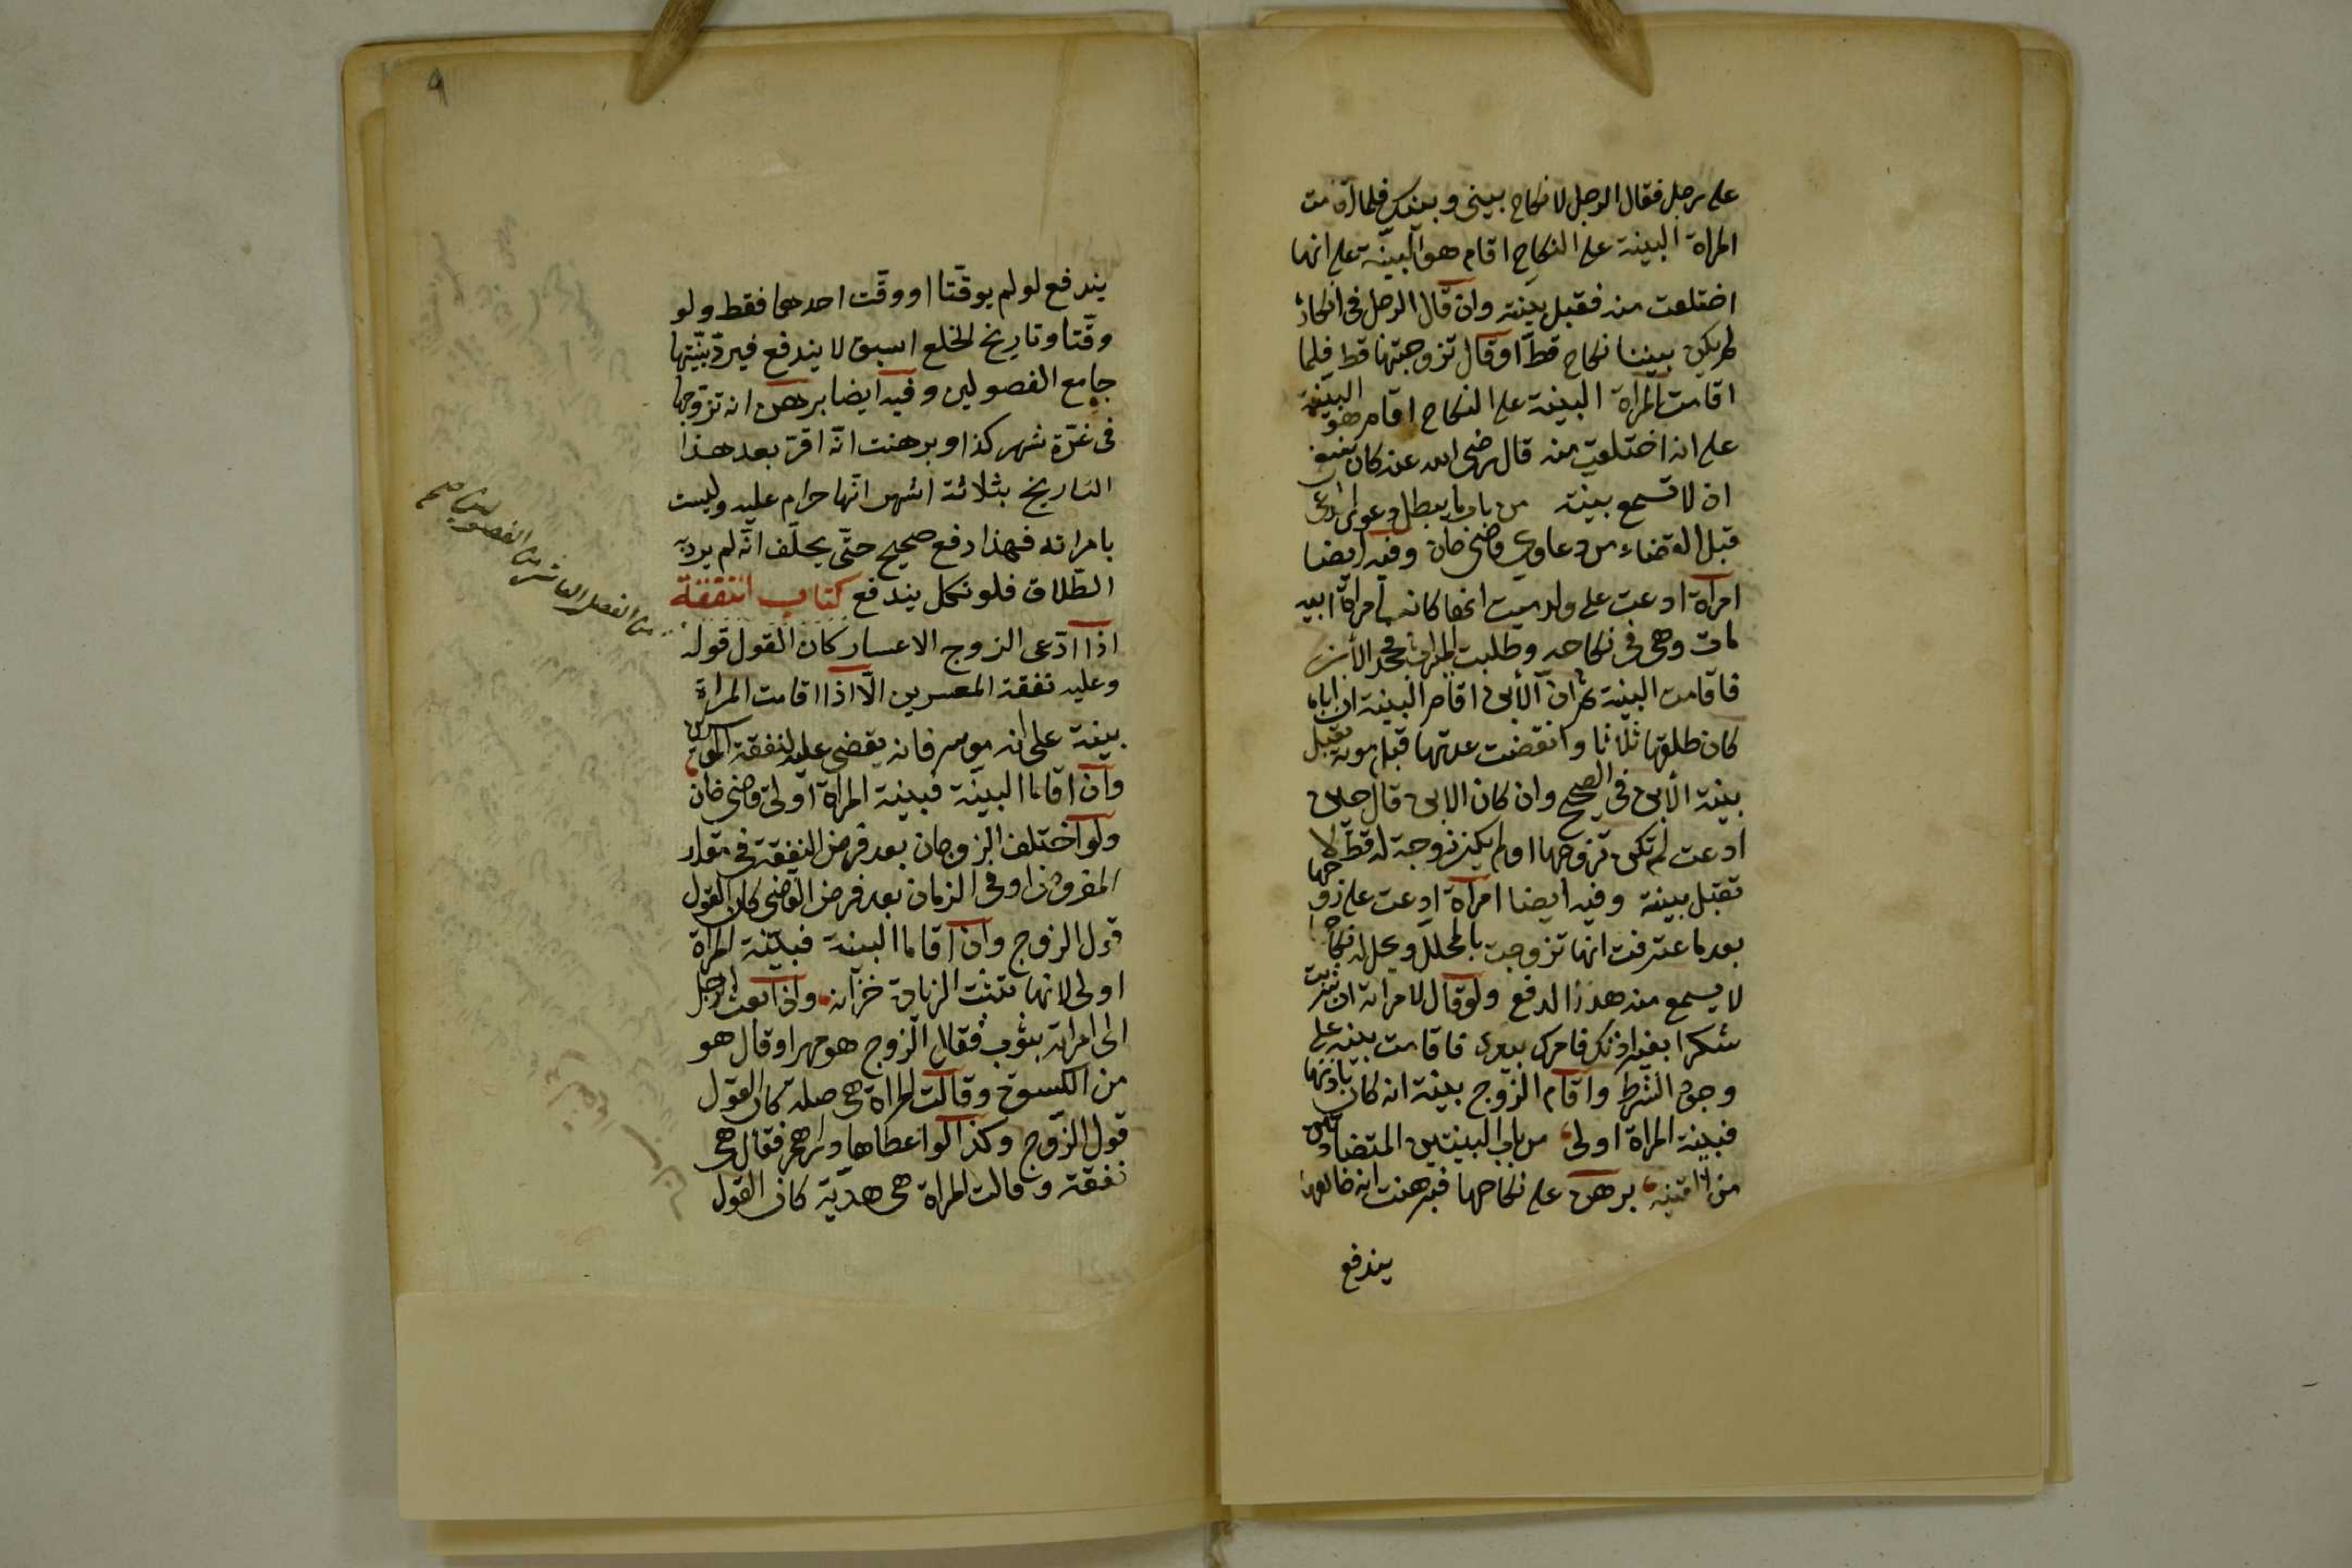 على رجل فقال الرجل لا نكاح بيني وبينك فلما اقامت
المراة البينة على النكاح اقام هو البينة على انها
اختلعت منه فقبل بينته وان قال الرجل فى انكاره
لم يكن بيننا نكاح قط او قال تزوجتها قط فلما
اقامت المراة البينة على النكاح اقام هو البينة
على انه اختلعت منه قال رضى الله عنه كان ينبغى
ان لا تسمع بينته من باب ما يبطل دعوى المدعى
قبل القضاء من دعاوى قاضى خان وفيه ايضا
امراة ادعت على ولد ميت انها كانت امراة ابيه
مات وهى فى نكاحه وطلبت الميراث فجحد الأبن
فاقامت البينة ثم ان الأبن اقام البينة ان اباه
كان طلقها ثلاثا وانقضت عدتها قبل موته تقبل
بينة الأبن فى الصحيح وان كان الابن قال حين
ادعت لم تكن تزوجها او لم يكن زوجة له قط لا
تقبل بينته وفيه ايضا امراة ادعت على زوجها
بعد ما اعترفت انها تزوجت بالمحلل ويحل له نكاحها
لا يسمع منه هذا الدفع ولو قال لامراته ان شربت
مسكرا بغير اذنك فامرك بيدك فاقامت بينة على
وجود الشرط واقام الزوج بينة انه كان باذنها
فبينة المراة اولى من باب البينتين المتضادتين
من القنية برهن على نكاحها فبرهنت انه خالعها
يندفع
٩
يندفع لو لم يوقّتا او وقّت احدهما فقط ولو
وقّتا وتاريخ الخلع اسبق لا يندفع فيردّ بيّنتها
جامع الفصولين وفيه ايضا برهن انه تزوجها
فى غرّة شهر كذا وبرهنت انّه اقرّ بعد هذا
التاريخ بثلاثة اشهر انّها حرام عليه وليست
بامراته فهذا دفع صحيح حتّى يحلّف انّه لم يرد به
الطّلاق فلو نكل يندفع كتاب النفقة
اذا ادّعى الزوج الاعسار كان القول قوله
وعليه نفقة المعسرين الّا اذا اقامت المراة
بينة على انه موسر فانه يقضى عليه بنفقة الموسر
وان اقاما البيّنة فبينة المراة اولى قاضى خان
ولو اختلف الزوجان بعد فرض النفقة فى مقدار
المفروض او فى الزمان بعد فرض القاضى كان القول
قول الزوج وان اقاما البينة فبيّنة المراة
اولى لانها تثبت الزيادة خزانه واذا بعث الرجل
الى امراته بثوب فقال الزوج هو مهر او قال هو
من الكسوة وقالت المراة هى صلة كان القول
قول الزّوج وكذا لو اعطاها دراهم فقال هى
نفقة وقالت المراة هى هديّة كان القول
من الفصل العاشر من الفصولين